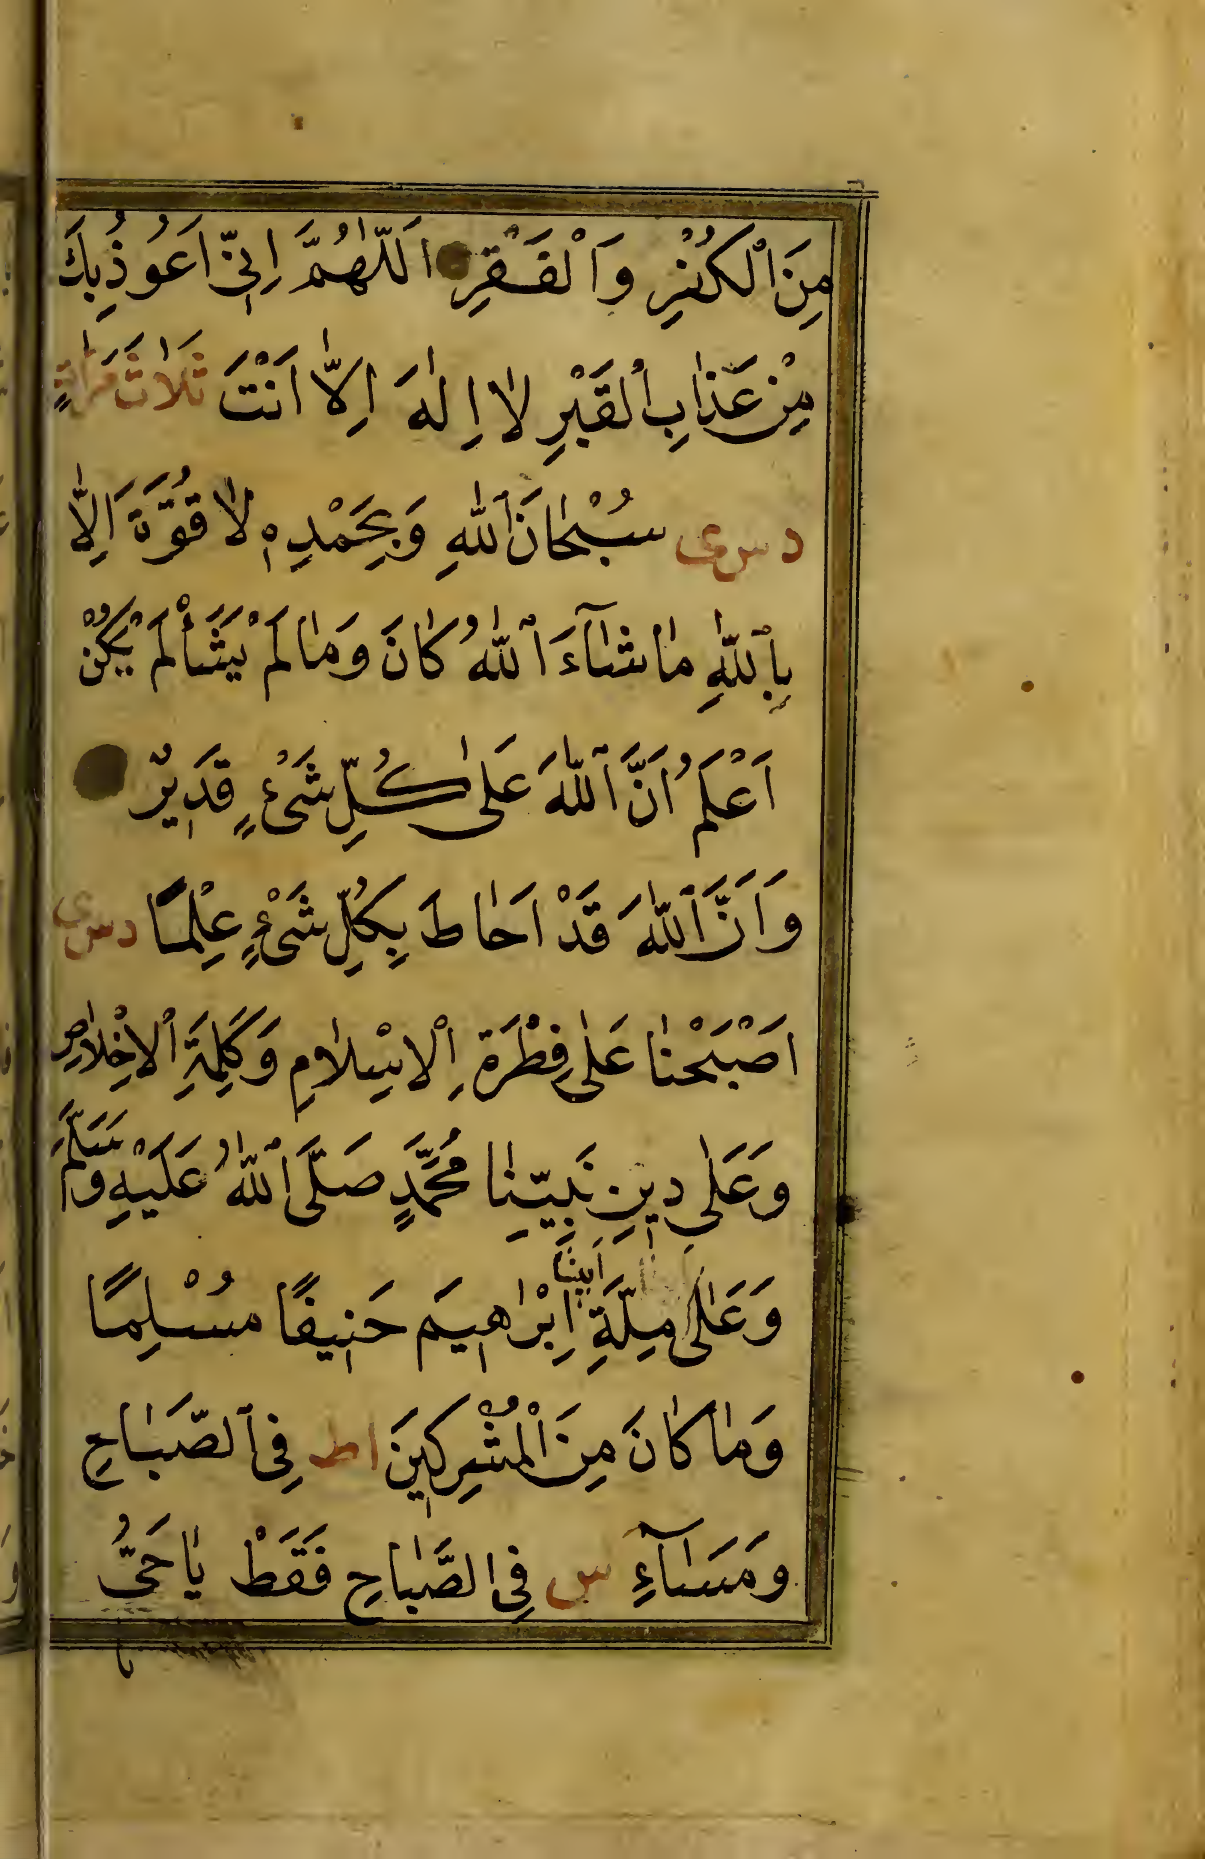 مِنَ الْكُفْرِ وَالْفَقْرِ اَللّٰهُمَّ اِنّٖى اَعُوذُبِكَ
مِنْ عَذَابِ الْقَبْرِ لَا اِلٰهَ اِلَّا اَنْتَ ثَلَاثَ مَرَّاتٍ
د س ى سُبْحَانَ اللّٰهِ وَبِحَمْدِهٖ لَا قُوَّةَ اِلَّا
بِاللّٰهِ مَا شَآءَ اللّٰهُ كَانَ وَمَا لَمْ يَشَأْ لَمْ يَكُنْ
اَعْلَمُ اَنَّ اللّٰهَ عَلٰى كُلِّ شَىْءٍ قَدٖيرٌ
وَاَنَّ اللّٰهَ قَدْ اَحَاطَ بِكُلِّ شَىْءٍ عِلْمًا د س ى
اَصْبَحْنَا عَلٰى فِطْرَةِ الْاِسْلَامِ وَكَلِمَةِ الْاِخْلَاصِ
وَعَلٰى دٖينِ نَبِيِّنَا مُحَمَّدٍ صَلَّى اللّٰهُ عَلَيْهِ وَسَلَّمَ
وَعَلٰى مِلَّةِ اَبٖينَا اِبْرَاهٖيمَ حَنٖيفًا مُسْلِمًا
وَمَا كَانَ مِنَ الْمُشْرِكٖينَ ا ط فِى الصَّبَاحِ
وَمَسَآءِ س فِى الصَّبَاحِ فَقَطْ يَا حَىُّ
يا